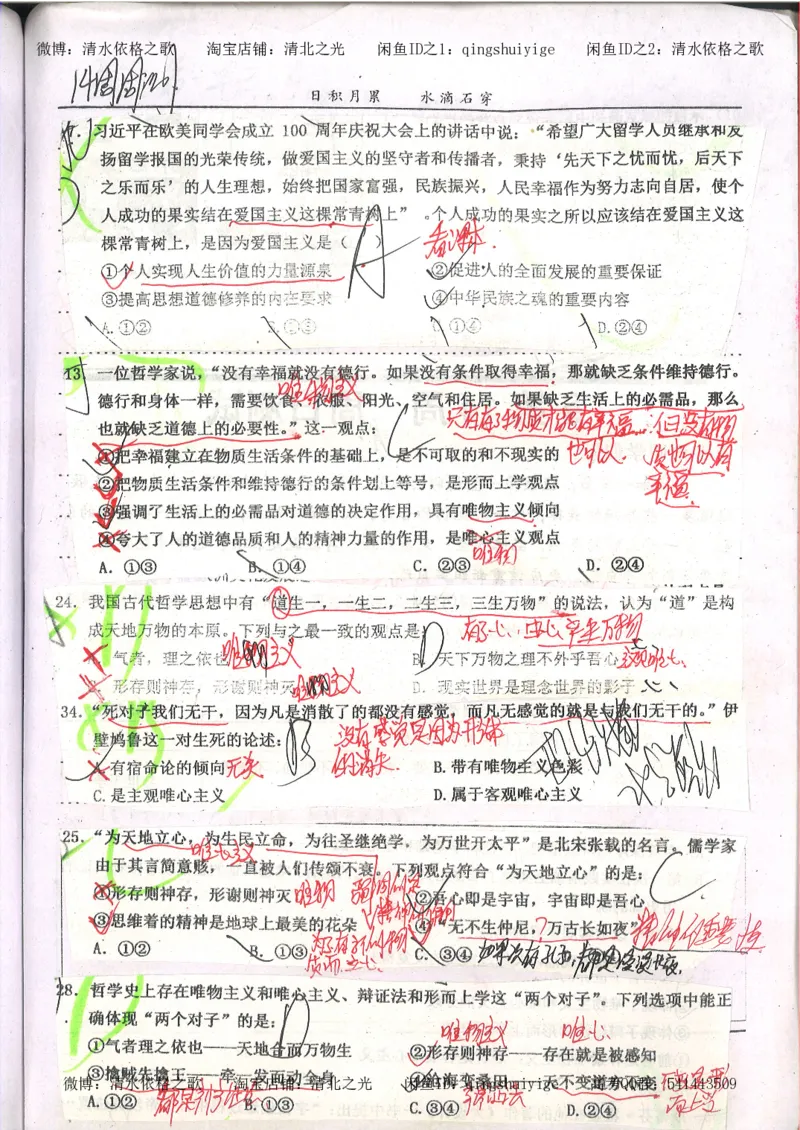 微博：清水依格之歌 淘宝店铺：清北之光 闲鱼ID之1：qingshuiyige 闲鱼ID之2：清水依格之歌
日积月累 水滴石穿
习近平在欧美同学会成立 100 周年庆祝大会上的讲话中说：“希望广大留学人员继承和发
扬留学报国的光荣传统，做爱国主义的坚守者和传播者，秉持‘先天下之忧而忧，后天下
之乐而乐’的人生理想，始终把国家富强，民族振兴，人民幸福作为努力志向自居，使个
人成功的果实结在爱国主义这棵常青树上” 。个人成功的果实之所以应该结在爱国主义这
棵常青树上，是因为爱国主义是（ ）
A
看课本.
①个人实现人生价值的力量源泉 ②促进人的全面发展的重要保证
③提高思想道德修养的内在要求 ④中华民族之魂的重要内容
A.①② B.①③ C.①④ D.②④
13. 一位哲学家说，“没有幸福就没有德行。如果没有条件取得幸福，那就缺乏条件维持德行。
德行和身体一样，需要饮食、衣服、阳光、空气和住居。如果缺乏生活上的必需品，那么
唯物主义
也就缺乏道德上的必要性。”这一观点：
C
①把幸福建立在物质生活条件的基础上，是不可取的和不现实的
②把物质生活条件和维持德行的条件划上等号，是形而上学观点
③强调了生活上的必需品对道德的决定作用，具有唯物主义倾向
④夸大了人的道德品质和人的精神力量的作用，是唯心主义观点
唯物
A. ①③ B. ①④ C. ②③ D. ②④
24. 我国古代哲学思想中有“道生一，一生二，二生三，三生万物”的说法，认为“道”是构
成天地万物的本原。下列与之最一致的观点是：
D
A. 气者，理之依也 B. 天下万物之理不外乎吾心
C. 形存则神存，形谢则神灭 D. 现实世界是理念世界的影子
34. “死对于我们无干，因为凡是消散了的都没有感觉，而凡无感觉的就是与我们无干的。”伊
壁鸠鲁这一对生死的论述：
B
A.有宿命论的倾向 无关 B.带有唯物主义色彩
C.是主观唯心主义 D.属于客观唯心主义
25. “为天地立心，为生民立命，为往圣继绝学，为万世开太平”是北宋张载的名言。儒学家
唯心主义
由于其言简意赅，一直被人们传颂不衰。下列观点符合“为天地立心”的是：
C
①形存则神存，形谢则神灭 唯物 ②吾心即是宇宙，宇宙即是吾心
③思维着的精神是地球上最美的花朵 ④“无不生仲尼，万古长如夜”
A. ①② B. ①③ C. ③④
28. 哲学史上存在唯物主义和唯心主义、辩证法和形而上学这“两个对子”。下列选项中能正
确体现“两个对子”的是：
D
唯物主义 唯心
①气者理之依也——天地合而万物生 ②形存则神存——存在就是被感知
③擒贼先擒王——牵一发而动全身 ④沧海变桑田——天不变道亦不变
微博：清水依格之歌 淘宝店铺：清北之光
A.①② B.①③ C.③④ D.②④